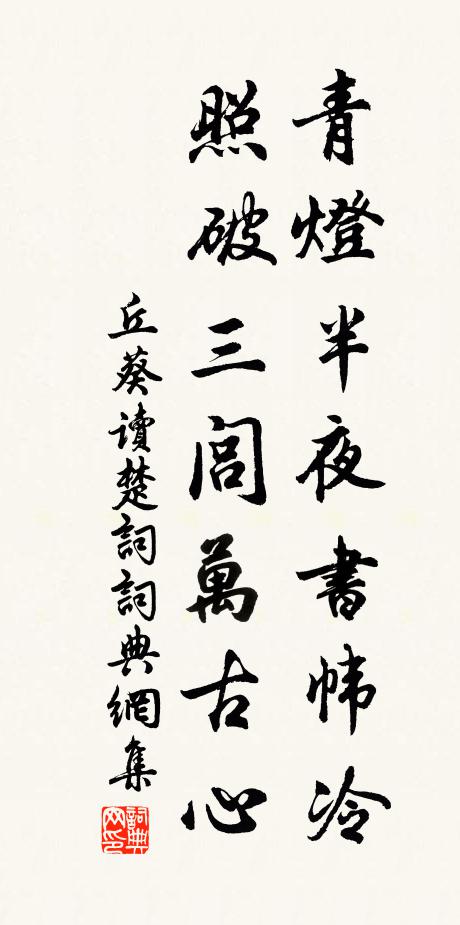 青燈半夜書幃冷
照破三閭萬古心
丘葵讀楚詞詞典網集
詞典
网印